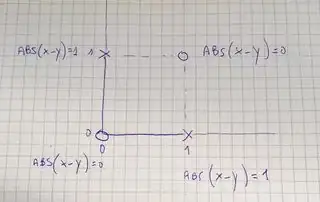 ABS(x-y)=1 1 X O ABS(x-y)=0
0 O X
0 1
ABS(x-y)=0
ABS(x-y)=1